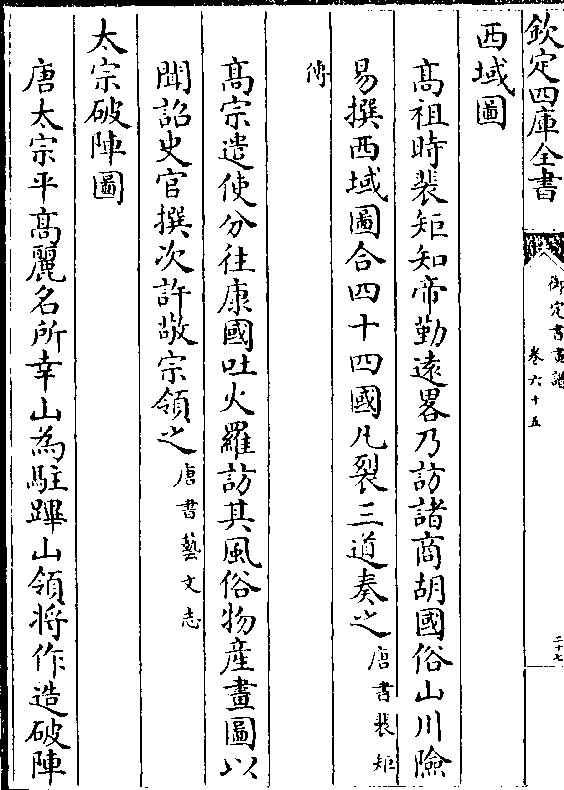 欽定四庫全書
御定書畫譜
卷六十五
二十七
西域圖
髙祖時裴矩知帝勤逺畧乃訪諸商胡國俗山川險
易撰西域圖合四十四國凡裂三道奏之唐書裴矩
傳
髙宗遣使分往康國吐火羅訪其風俗物産畫圖以
聞詔史官撰次許敬宗領之唐書藝文志
太宗破陣圖
唐太宗平髙麗名所幸山為駐蹕山領將作造破陣